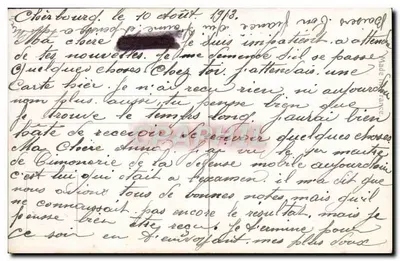 Cherbourg, le 10 Août 1913.
Ma chère je suis impatient d'attendre
de tes nouvelles. Je me demande s'il se passe
Quelques choses Chez toi j'attendais une
Carte hier. je n'ai reçu rien, ni aujourd'hui
non plus. aussi tu pense bien que
je trouve le temps long. j'aurai bien
hate de recevoir
Ma Chère ai vu le maitre
de Timonerie de la défense mobile aujourd'hui
c'est lui qui était a l'examen il m'a dit que
nous avions tous de bonnes notes, mais qu'il
ne connaissait pas encore le resultat, mais je
pense bien être reçu. Je termine pour
ce soir en t'envoyant mes plus doux